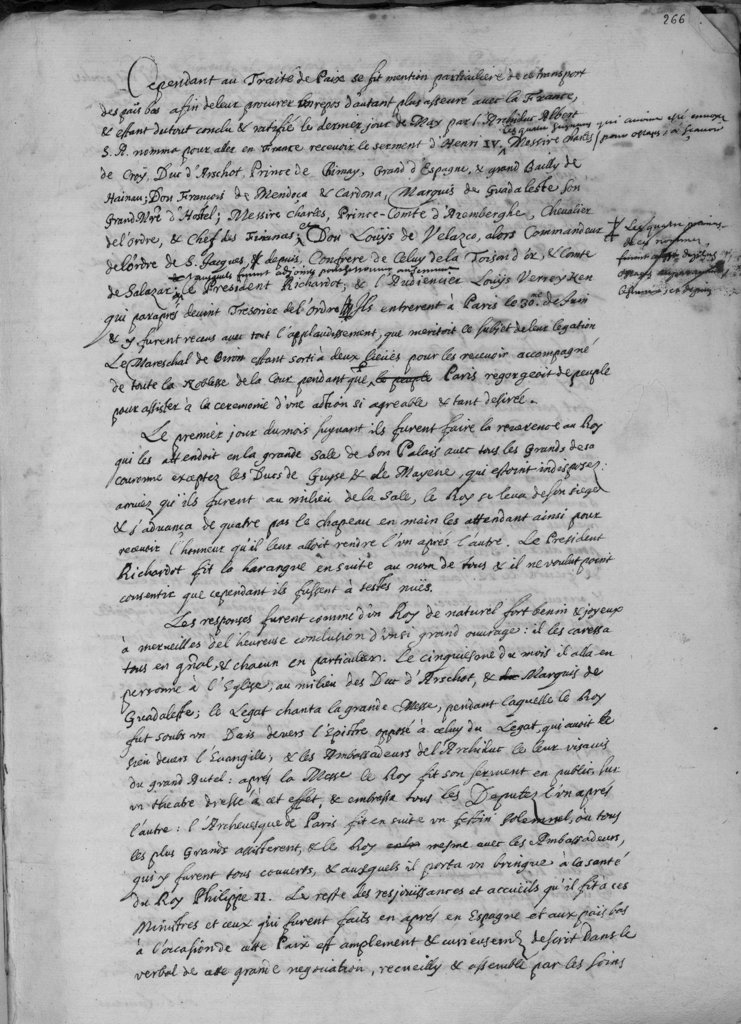 266
Cependant au Traité de Paix se fit mention particuliere de ce transport
des païs bas afin de leur procurer un repos d'autant plus asseuré avec la France,
& estant du tout conclu & ratifié le dernier jour de May par l'Archiduc Albert
S. A. nomma pour aller en France recevoir le serment d'Henri IV, Messire Charles
les quatre Seigneurs qui avoient esté envoyez
pour ostages, à sçavoir
de Croy, Duc d'Arschot, Prince de Chimay, Grand d'Espagne, & grand Bailly de
Hainau; Don François de Mendoça & Cardona, Marquis de Guadaleste son
Grand Mre d'Hostel; Messire Charles, Prince-Comte d'Aremberghe, Chevalier
de l'ordre, & Chef des Finances; et Don Louÿs de Velazco, alors Commandeur
de l'ordre de S. Jacques, & depuis, Confrere de Celuy de la Toison d'or, & Conte
de Salazar; le President Richardot, & l'Audiencier Louÿs Verreyken
ausquels furent adjoints
qui par apres devint Tresorier de l'ordre. Ils entrerent à Paris le 30e. de Juin
& y furent receus avec tout l'applaudissement, que meritoit ce subjet de leur legation
Le Mareschal de Biron estant sorti a deux lieües pour les recevoir accompagné
de toute la Noblesse de la Cour pendant que le peuple Paris regorgeoit de peuple
pour assister à la ceremonie d'une action si agreable & tant desirée.
Le premier jour du mois suyvant ils furent faire la reverence au Roy
qui les attendoit en la grande Sale de Son Palais avec tous les Grands de sa
couronne exceptez les Ducs de Guyse & de Mayene, qui estoint indisposez:
arrivez qu'ils furent au milieu de la Sale, le Roy se leva de son siege
& s'advança de quatre pas le chapeau en main les attendant ainsi pour
recevoir l'honneur qu'il leur alloit rendre l'un apres l'autre. Le President
Richardot fit la harangue en suite au nom de tous & il ne voulut point
consentir que cependant ils fussent à testes nuës.
Les responses furent comme d'un Roy de naturel fort benin & joyeux
à merveilles de l'heureuse conclusion d'un si grand ouvrage: il les caressa
tous en gnãl, & chacun en particulier. Le cinquiesme du mois il alla en
personne à l'Eglise, au milieu des Duc d'Arschot, & Marquis de
Guadaleste; le Legat chanta la grande Messe, pendant laquelle le Roy
fut soubs un Dais devers l'Epistre opposé à celuy du Legat, qui avoit le
sien devers l'Evangile; & les Ambassadeurs de l'Archiduc le leur visavis
du grand Autel: aprés la Messe le Roy fit son serment en public sur
un theatre dressé à cet effet, & embrassa tous les Deputez l'un apres
l'autre: l'Archevesque de Paris fit en suite un festin solemnel, où tous
les plus Grands assisterent, & le Roy mesme avec les Ambassadeurs,
qui y furent tous couverts, & ausquels il porta un bringue à la santé
du Roy Philippe II. Le reste des resjoüissances et accueils qu'il fit a ces
Ministres et ceux qui furent faits en apres en Espagne et aux païs bas
à l'occasion de cette Paix est amplement & curieusemt descrit dans le
verbal de cette grande negotiation, recueilly & assemblé par les soins